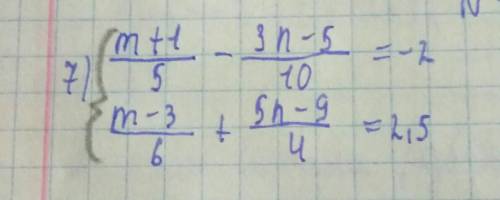 7) { (m+1)/5 - (3n-5)/10 = -2
(m-3)/6 + (5n-9)/4 = 2,5